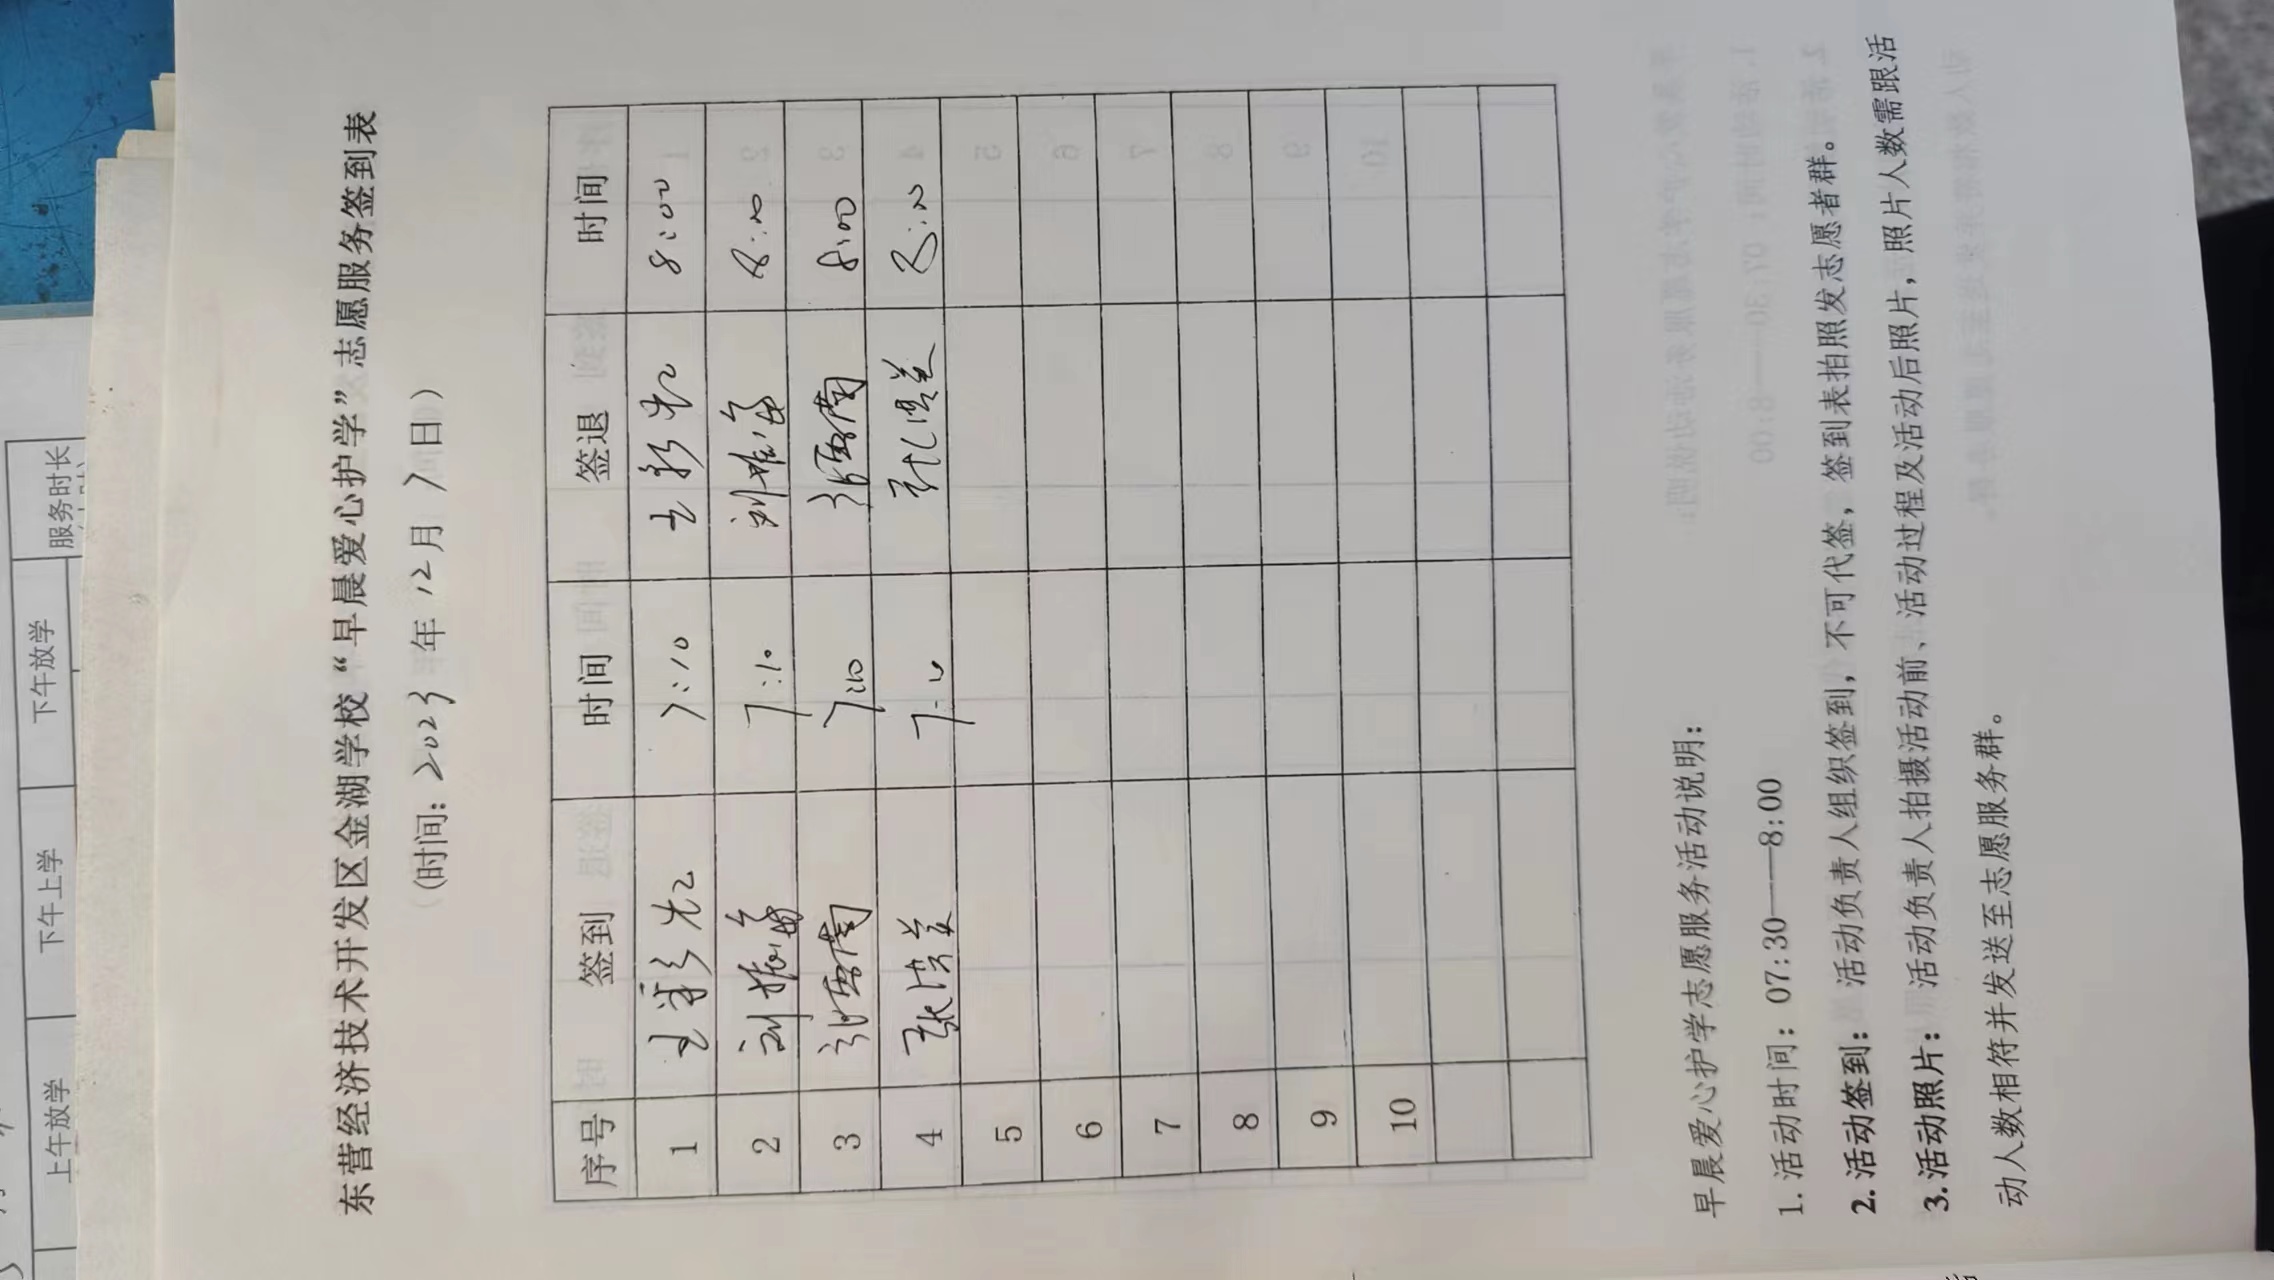 东营经济技术开发区金湖学校“早晨爱心护学”志愿服务签到表
(时间: 2023 年 12 月 7 日)
序号 签到 时间 签退 时间
1 7:10 8:00
2 7:10 8:00
3 7:10 8:00
4 张洪美 8:00
5
6
7
8
9
10
早晨爱心护学志愿服务活动说明:
1. 活动时间: 07:30——8:00
2. 活动签到: 活动负责人组织签到,不可代签,签到表拍照发志愿者群。
3. 活动照片: 活动负责人拍摄活动前、活动过程及活动后照片,照片人数需跟活
动人数相符并发送至志愿服务群。
上午放学 下午上学 下午放学 服务时长